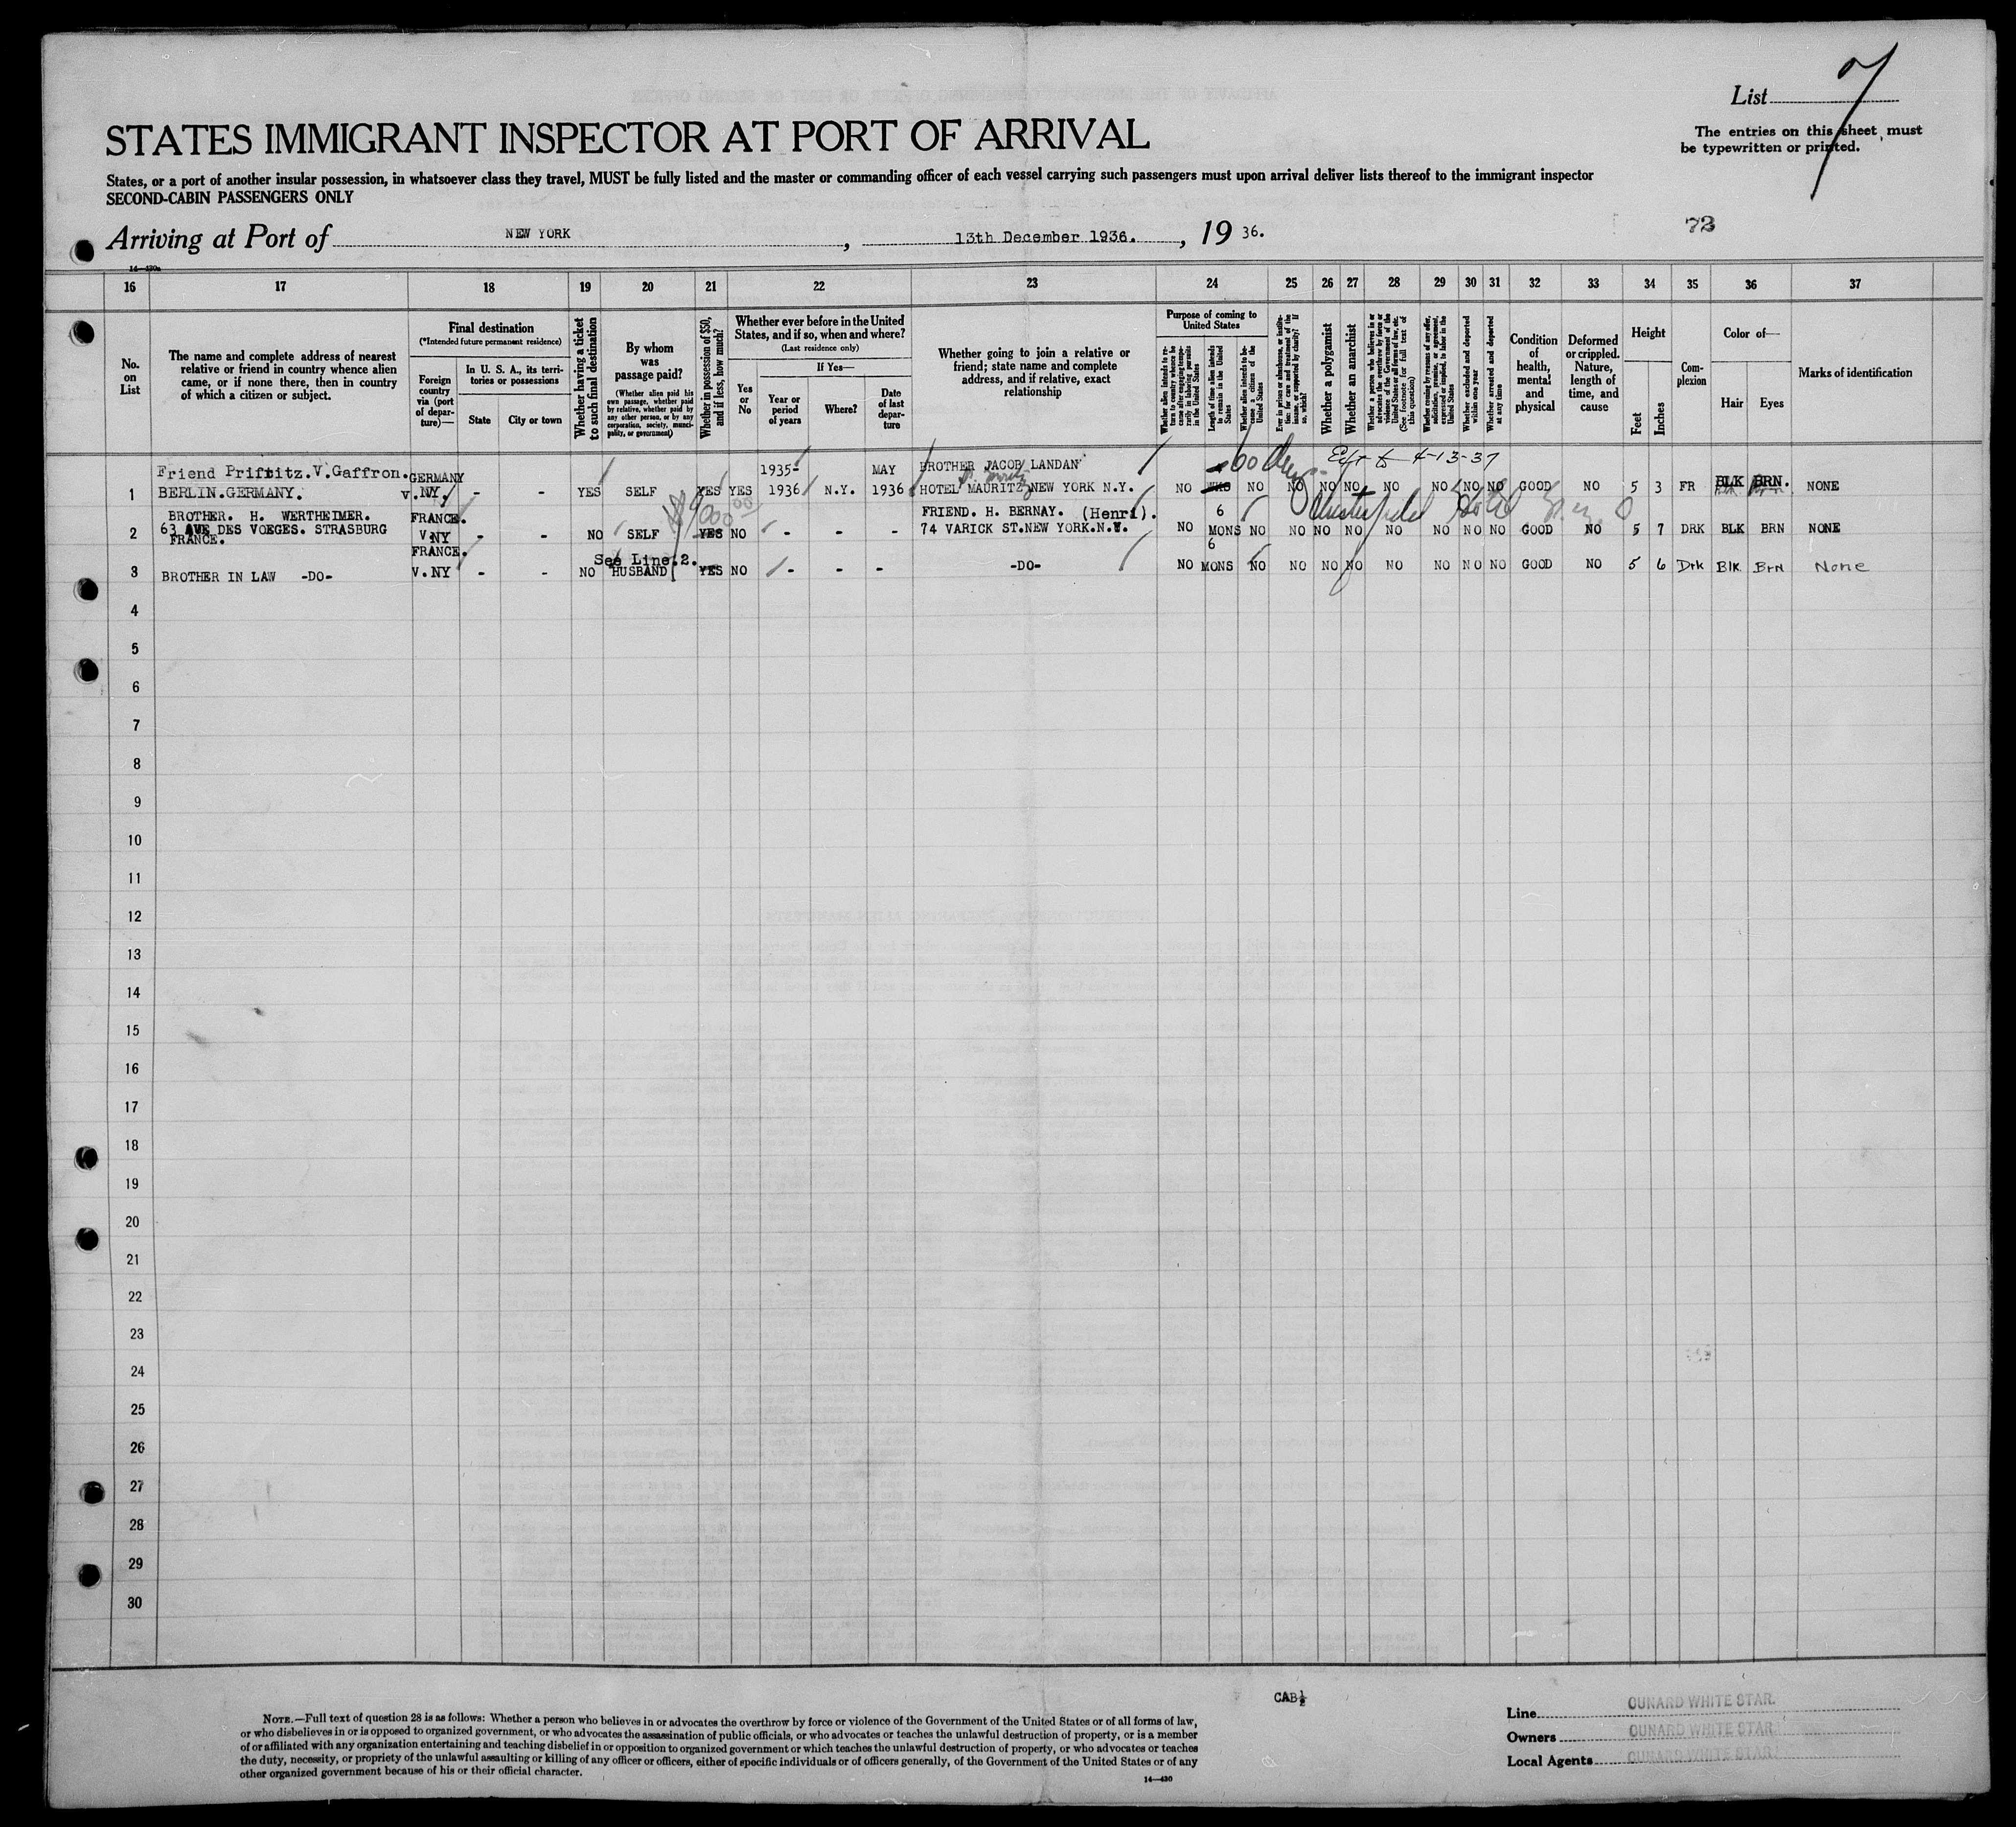 List 7
The entries on this sheet must
be typewritten or printed.
STATES IMMIGRANT INSPECTOR AT PORT OF ARRIVAL
States, or a port of another insular possession, in whatsoever class they travel, MUST be fully listed and the master or commanding officer of each vessel carrying such passengers must upon arrival deliver lists thereof to the immigrant inspector
SECOND-CABIN PASSENGERS ONLY
Arriving at Port of NEW YORK, 13th December 1936., 19 36.
73
14—430a
16 17 18 19 20 21 22 23 24 25 26 27 28 29 30 31 32 33 34 35 36 37
No.
on
List
The name and complete address of nearest
relative or friend in country whence alien
came, or if none there, then in country
of which a citizen or subject.
Final destination
(*Intended future permanent residence)
Foreign
country
via (port
of depar-
ture)—
In U. S. A., its terri-
tories or possessions
State
City or town
Whether having a ticket
to such final destination
By whom
was
passage paid?
(Whether alien paid his
own passage, whether paid
by relative, whether paid by
any other person, or by any
corporation, society, munici-
pality, or government)
Whether in possession of $50,
and if less, how much?
Whether ever before in the United
States, and if so, when and where?
(Last residence only)
Yes
or
No
If Yes—
Year or
period
of years
Where?
Date
of last
depar-
ture
Whether going to join a relative or
friend; state name and complete
address, and if relative, exact
relationship
Purpose of coming to
United States
Whether alien intends to re-
turn to country whence he
came after engaging tempo-
rarily in laboring pursuits
in the United States
Length of time alien intends
to remain in the United
States
Whether alien intends to be-
come a citizen of the
United States
Ever in prison or almshouse, institu-
tion for care and treatment of the
insane, or supported by charity? If
so, which?
Whether a polygamist
Whether an anarchist
Whether a person who believes in or
advocates the overthrow by force or
violence of the Government of the
United States or all forms of law, etc.
(See footnote for full text of
this question)
Whether coming by reasons of any offer,
solicitation, promise, or agreement,
expressed or implied, to labor in the
United States
Whether excluded and deported
within one year
Whether arrested and deported
at any time
Condition
of
health,
mental
and
physical
Deformed
or crippled.
Nature,
length of
time, and
cause
Height
Feet
Inches
Com-
plexion
Color of—
Hair
Eyes
Marks of identification
Friend Prifritz.V.Gaffron. GERMANY 1935- MAY BROTHER JACOB LANDAN 60 days 4-13-37
1 BERLIN.GERMANY. V.NY. - - YES SELF YES YES 1936 N.Y. 1936 HOTEL MAURITZ NEW YORK N.Y. NO WKS NO NO NO NO NO NO NO NO GOOD NO 5 3 FR BLK BRN. NONE
BROTHER. H. WERTHEIMER. FRANCE. $9000.00 FRIEND. H. BERNAY. (Henri). 6 Chesterfield Hotel
2 63 AVE DES VOEGES. STRASBURG V.NY - - NO SELF YES NO - - - 74 VARICK ST.NEW YORK.N.Y. NO MONS NO NO NO NO NO NO NO NO GOOD NO 5 7 DRK BLK BRN NONE
FRANCE. FRANCE. See Line.2. 6
3 BROTHER IN LAW -DO- V.NY - - NO HUSBAND YES NO - - - -DO- NO MONS NO NO NO NO NO NO NO NO GOOD NO 5 6 Drk Blk Brn None
4
5
6
7
8
9
10
11
12
13
14
15
16
17
18
19
20
21
22
23
24
25
26
27
28
29
30
CAB½
NOTE.—Full text of question 28 is as follows: Whether a person who believes in or advocates the overthrow by force or violence of the Government of the United States or of all forms of law,
or who disbelieves in or is opposed to organized government, or who advocates the assassination of public officials, or who advocates or teaches the unlawful destruction of property, or is a member
of or affiliated with any organization entertaining and teaching disbelief in or opposition to organized government or which teaches the unlawful destruction of property, or who advocates or teaches
the duty, necessity, or propriety of the unlawful assaulting or killing of any officer or officers, either of specific individuals or of officers generally, of the Government of the United States or of any
other organized government because of his or their official character.
14—430
Line CUNARD WHITE STAR.
Owners CUNARD WHITE STAR
Local Agents CUNARD WHITE STAR